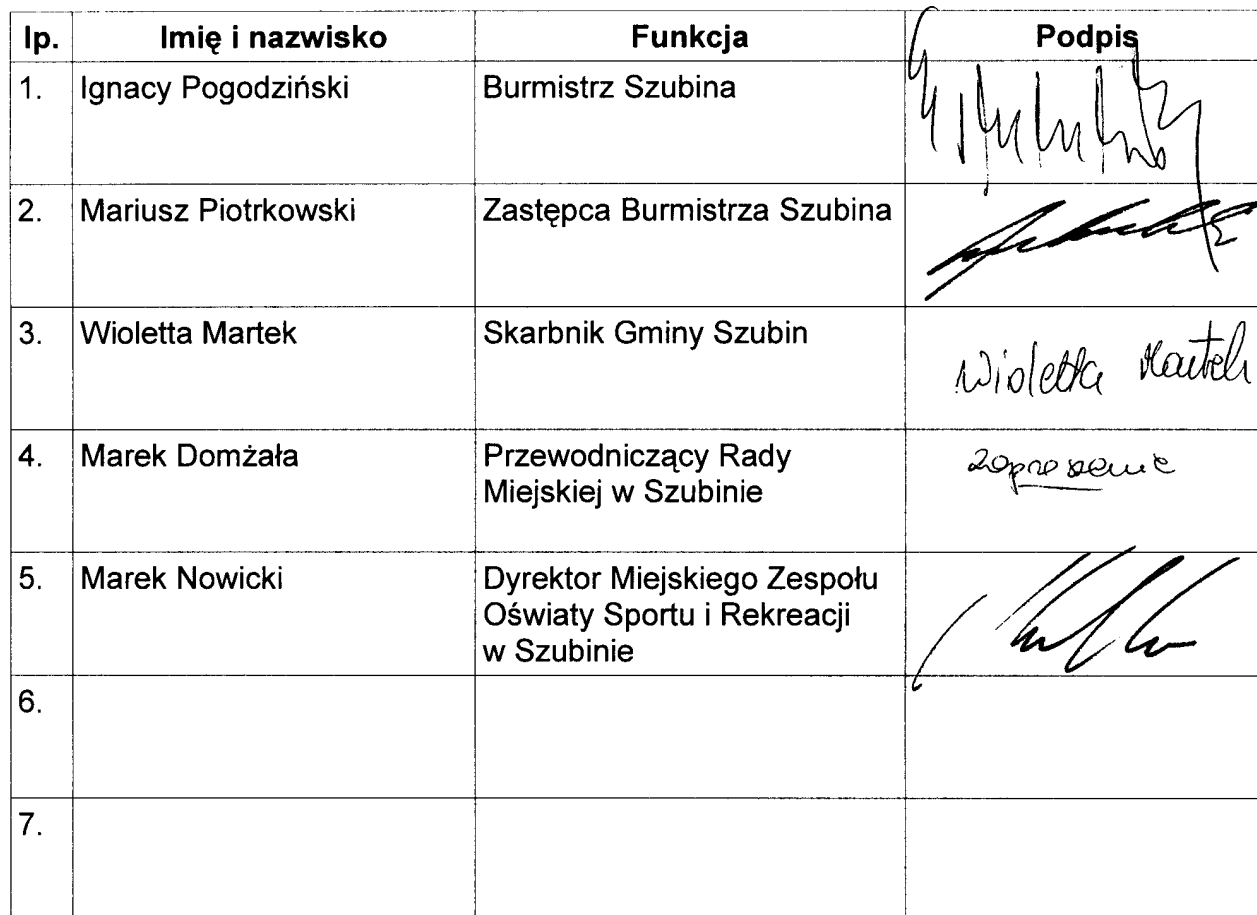 lp. Imię i nazwisko Funkcja Podpis
1. Ignacy Pogodziński Burmistrz Szubina
2. Mariusz Piotrkowski Zastępca Burmistrza Szubina
3. Wioletta Martek Skarbnik Gminy Szubin Wioletta Martek
4. Marek Domżała Przewodniczący Rady
Miejskiej w Szubinie
5. Marek Nowicki Dyrektor Miejskiego Zespołu
Oświaty Sportu i Rekreacji
w Szubinie
6.
7.